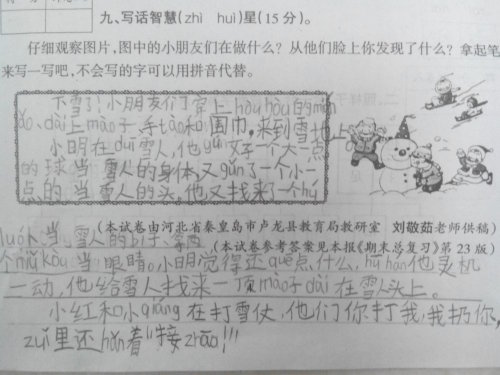 九、写话智慧(zhì huì)星(15分)。
仔细观察图片,图中的小朋友们在做什么?从他们脸上你发现了什么?拿起笔
来写一写吧,不会写的字可以用拼音代替。
下雪了!小朋友们穿上hòu hòu的mián
ǎo、dài上mào子、手tào和围巾,来到雪地上。
小明在duī雪人,他gǔn好一个大一点
的球当雪人的身体,又gǔn了一个小一
点的当雪人的头。他又找来了一个hú
luó卜当雪人的bí子、拿两
(本试卷由河北省秦皇岛市卢龙县教育局教研室 刘敬茹老师供稿)
(本试卷参考答案见本报《期末总复习》第23版)
个niǔ kòu当眼睛。小明觉得还quē点什么,他灵机
一动,他给雪人找来一顶mào子dài在雪人头上。
小红和小qiáng在打雪仗,他们你打我,我扔你,
zuǐ里还hǎn着“接zhāo!”